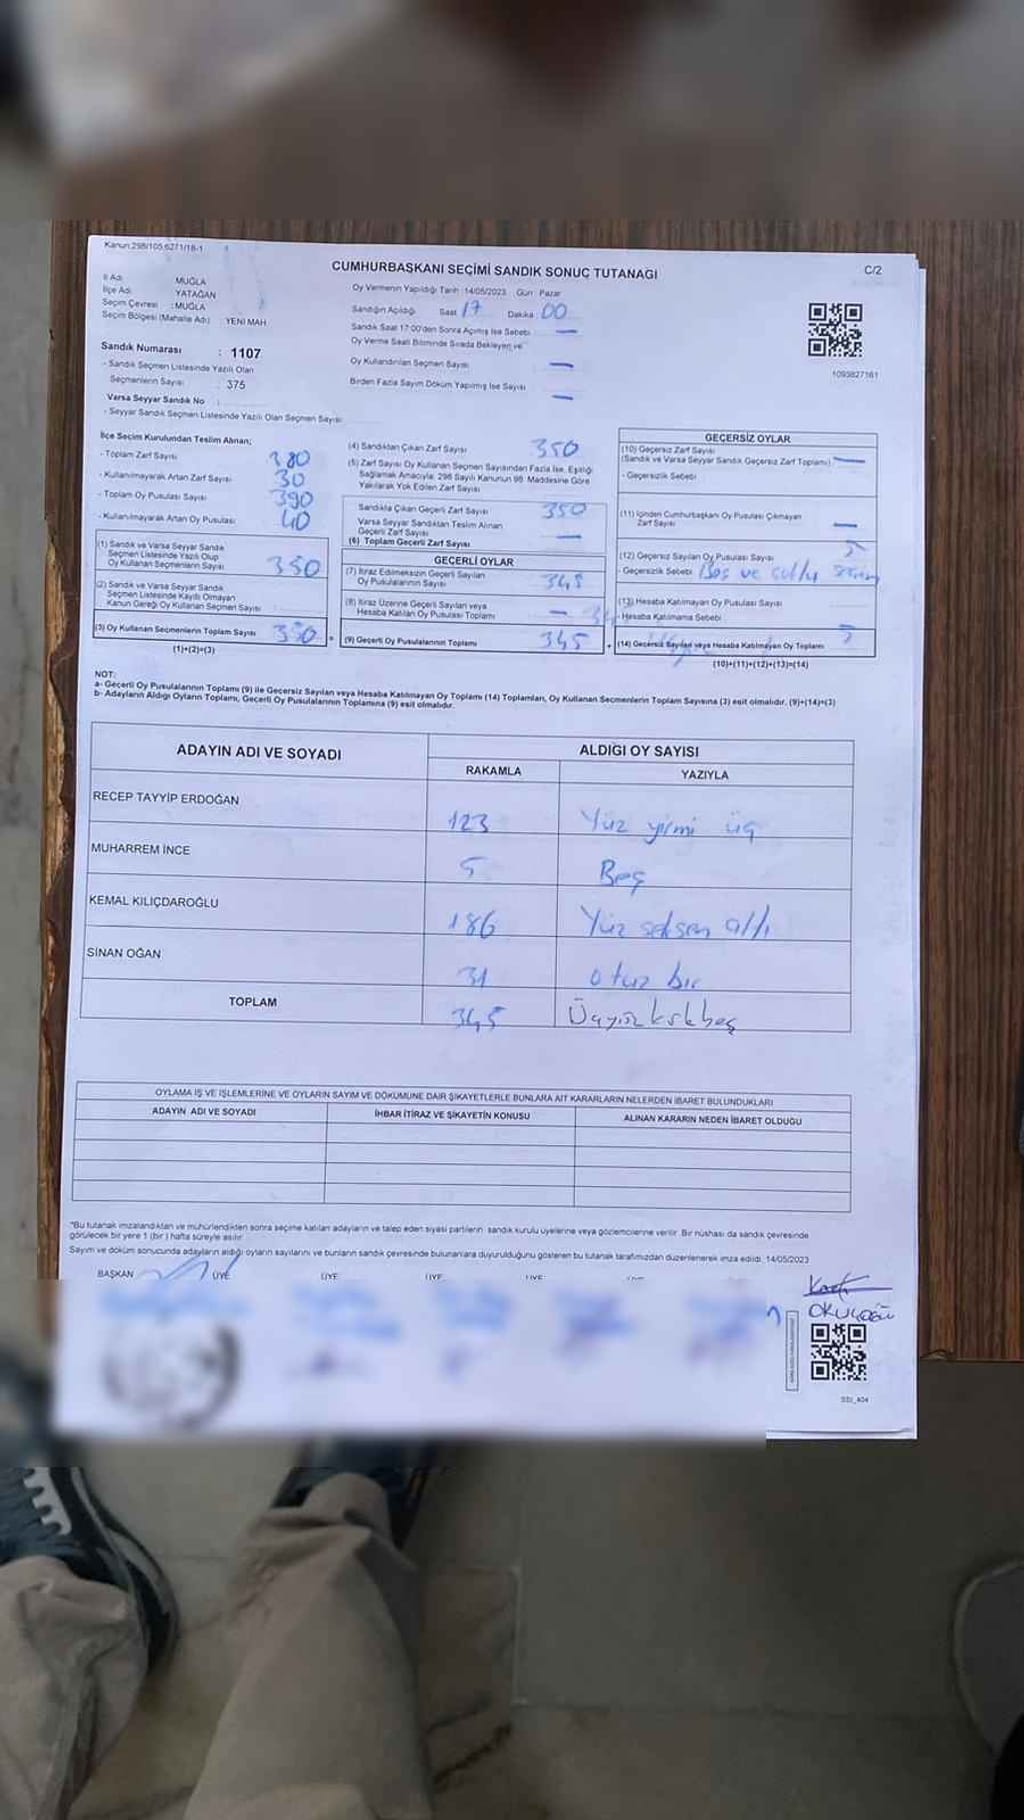 Kanun:298/105,6271/18-1
CUMHURBAŞKANI SEÇİMİ SANDIK SONUÇ TUTANAĞI
C/2
İl Adı MUĞLA
İlçe Adı YATAĞAN
Seçim Çevresi : MUĞLA
Seçim Bölgesi (Mahalle Adı) : YENİ MAH
Oy Vermenin Yapıldığı Tarih 14/05/2023 Gün Pazar
Sandığın Açıldığı Saat 17 Dakika 00
Sandık Saat 17:00'den Sonra Açılmış İse Sebebi —
Oy Verme Saati Bitiminde Sırada Bekleyen ve
Oy Kullandırılan Seçmen Sayısı —
Birden Fazla Sayım Döküm Yapılmış İse Sayısı —
1093827161
Sandık Numarası : 1107
- Sandık Seçmen Listesinde Yazılı Olan
Seçmenlerin Sayısı : 375
Varsa Seyyar Sandık No :
- Seyyar Sandık Seçmen Listesinde Yazılı Olan Seçmen Sayısı
İlçe Seçim Kurulundan Teslim Alınan;
- Toplam Zarf Sayısı 380
- Kullanılmayarak Artan Zarf Sayısı 30
- Toplam Oy Pusulası Sayısı 390
- Kullanılmayarak Artan Oy Pusulası 40
(1) Sandık ve Varsa Seyyar Sandık
Seçmen Listesinde Yazılı Olup
Oy Kullanan Seçmenlerin Sayısı 350
(2) Sandık ve Varsa Seyyar Sandık
Seçmen Listesinde Kayıtlı Olmayan
Kanun Gereği Oy Kullanan Seçmen Sayısı
(3) Oy Kullanan Seçmenlerin Toplam Sayısı 350
(1)+(2)=(3)
(4) Sandıktan Çıkan Zarf Sayısı 350
(5) Zarf Sayısı Oy Kullanan Seçmen Sayısından Fazla İse, Eşitliği
Sağlamak Amacıyla, 298 Sayılı Kanunun 98. Maddesine Göre
Yakılarak Yok Edilen Zarf Sayısı
Sandıkta Çıkan Geçerli Zarf Sayısı 350
Varsa Seyyar Sandıktan Teslim Alınan
Geçerli Zarf Sayısı —
(6) Toplam Geçerli Zarf Sayısı
GEÇERLİ OYLAR
(7) İtiraz Edilmeksizin Geçerli Sayılan
Oy Pusulalarının Sayısı 345
(8) İtiraz Üzerine Geçerli Sayılan veya
Hesaba Katılan Oy Pusulası Toplamı —
(9) Geçerli Oy Pusulalarının Toplamı 345
GEÇERSİZ OYLAR
(10) Geçersiz Zarf Sayısı
(Sandık ve Varsa Seyyar Sandık Geçersiz Zarf Toplamı) —
- Geçersizlik Sebebi
(11) İçinden Cumhurbaşkanı Oy Pusulası Çıkmayan
Zarf Sayısı —
(12) Geçersiz Sayılan Oy Pusulası Sayısı 5
- Geçersizlik Sebebi Boş ve
(13) Hesaba Katılmayan Oy Pusulası Sayısı
- Hesaba Katılmama Sebebi
(14) Geçersiz Sayılan veya Hesaba Katılmayan Oy Toplamı 5
(10)+(11)+(12)+(13)=(14)
NOT:
a- Geçerli Oy Pusulalarının Toplamı (9) ile Geçersiz Sayılan veya Hesaba Katılmayan Oy Toplamı (14) Toplamları, Oy Kullanan Seçmenlerin Toplam Sayısına (3) eşit olmalıdır. (9)+(14)=(3)
b- Adayların Aldığı Oyların Toplamı, Geçerli Oy Pusulalarının Toplamına (9) eşit olmalıdır.
ADAYIN ADI VE SOYADI
ALDIĞI OY SAYISI
RAKAMLA YAZIYLA
RECEP TAYYİP ERDOĞAN 123 Yüz yirmi üç
MUHARREM İNCE 5 Beş
KEMAL KILIÇDAROĞLU 186 Yüz seksen altı
SİNAN OĞAN 31 otuz bir
TOPLAM 345 Üçyüzkırkbeş
OYLAMA İŞ VE İŞLEMLERİNE VE OYLARIN SAYIM VE DÖKÜMÜNE DAİR ŞİKAYETLERLE BUNLARA AİT KARARLARIN NELERDEN İBARET BULUNDUKLARI
ADAYIN ADI VE SOYADI İHBAR İTİRAZ VE ŞİKAYETİN KONUSU ALINAN KARARIN NEDEN İBARET OLDUĞU
"Bu tutanak imzalandıktan ve mühürlendikten sonra seçime katılan adayların ve talep eden siyasi partilerin sandık kurulu üyelerine veya gözlemcilerine verilir. Bir nüshası da sandık çevresinde
görülecek bir yere 1 (bir) hafta süreyle asılır.
Sayım ve döküm sonucunda adayların aldığı oyların sayılarını ve bunların sandık çevresinde bulunanlara duyurulduğunu gösteren bu tutanak tarafımızdan düzenlenerek imza edildi. 14/05/2023
BAŞKAN ÜYE ÜYE ÜYE ÜYE